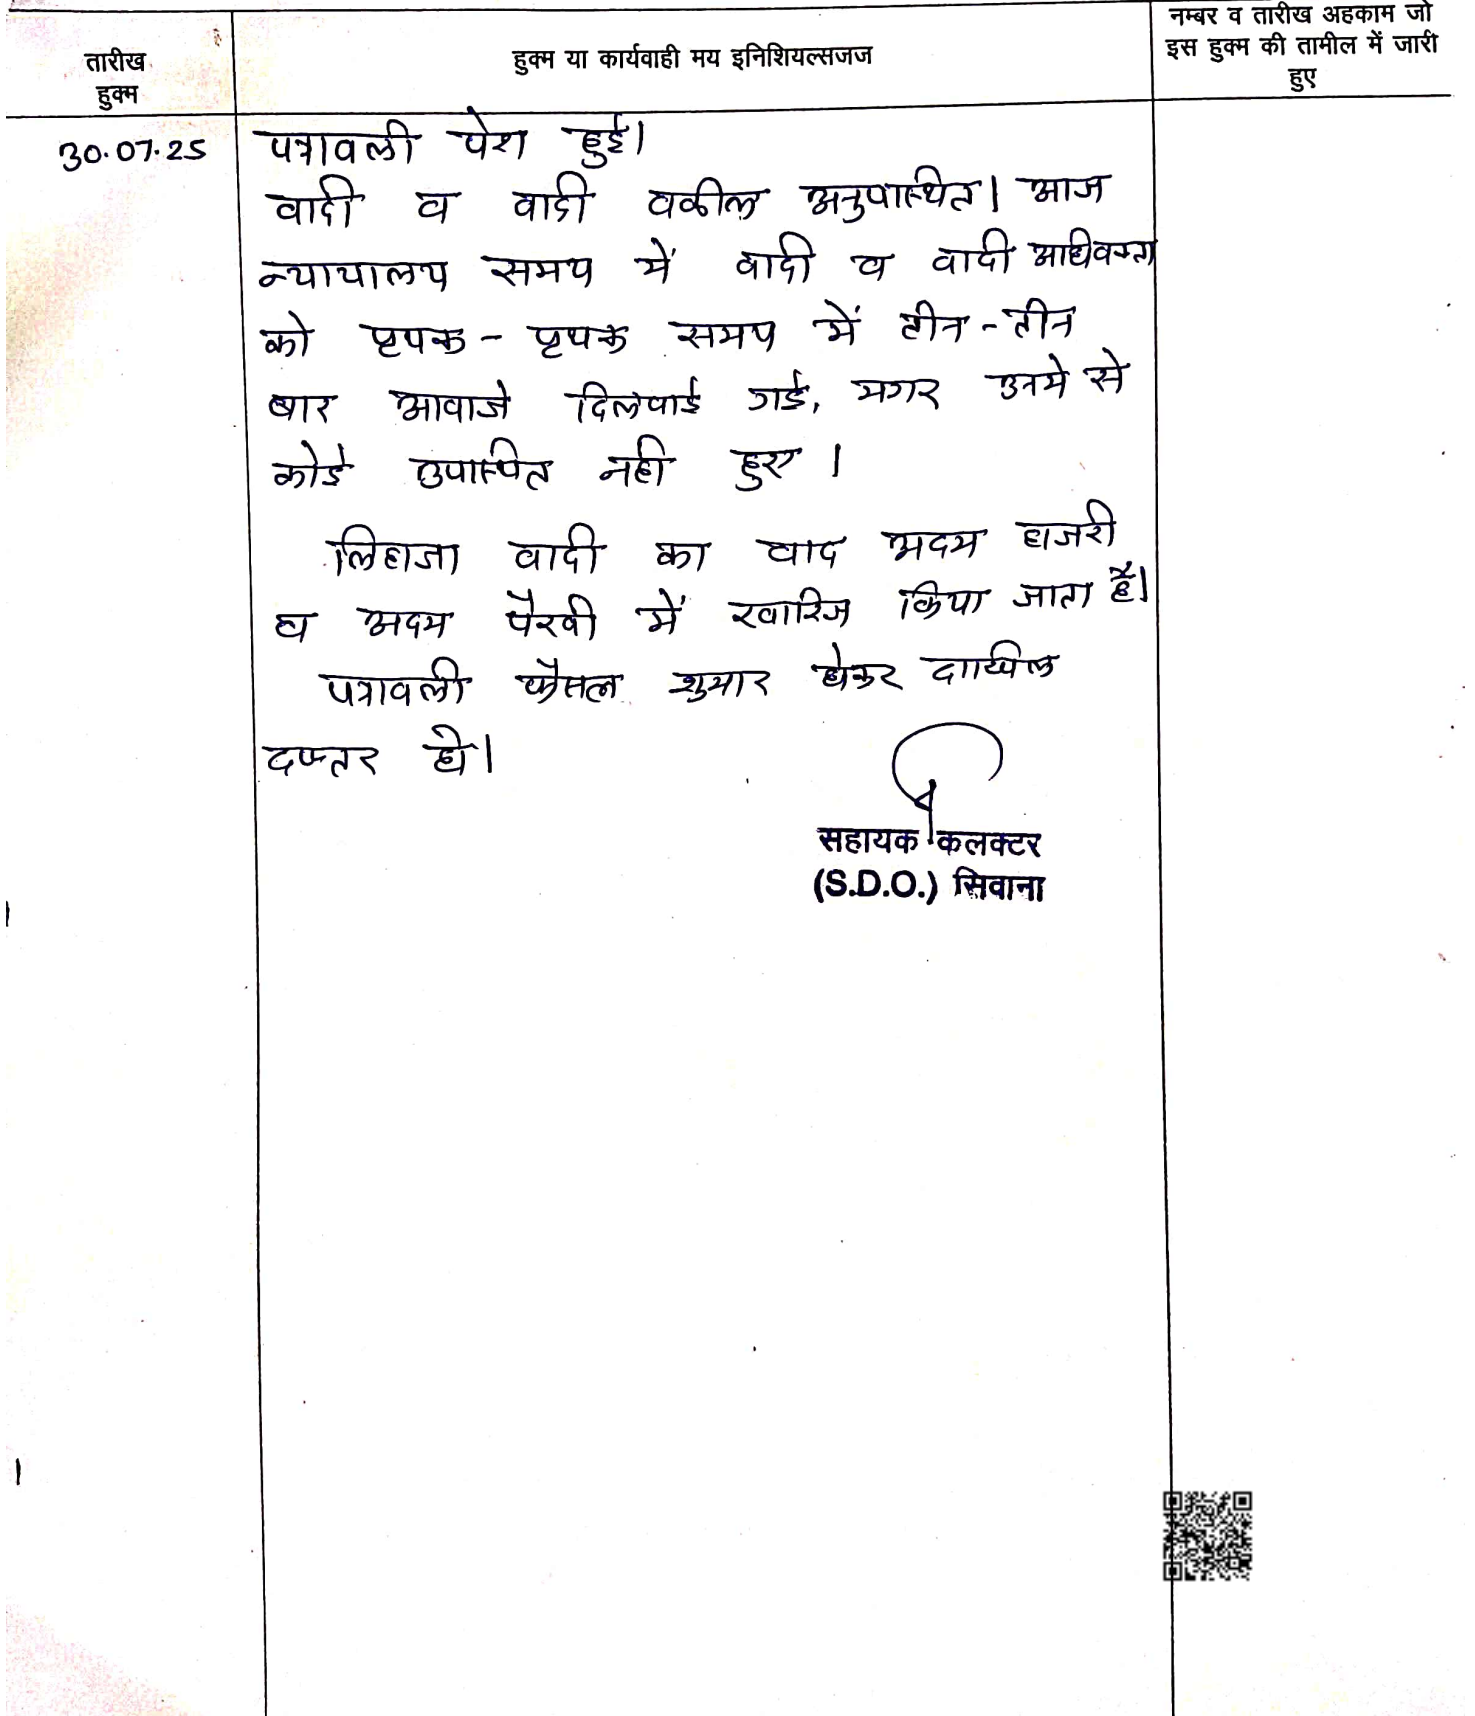 तारीख
हुक्म
हुक्म या कार्यवाही मय इनिशियल्सजज
नम्बर व तारीख अहकाम जो
इस हुक्म की तामील में जारी
हुए
30.07.25
पत्रावली पेश हुई।
वादी व वादी वकील अनुपस्थित। आज
न्यायालय समय में वादी व वादी अधिवक्ता
को पृथक - पृथक समय में तीन - तीन
बार आवाजे दिलवाई गई, मगर उनमे से
कोई उपस्थित नही हुए ।
लिहाजा वादी का वाद अदम हाजरी
व अदम पैरवी में खारिज किया जाता है।
पत्रावली फैसल शुमार होकर दाखिल
दफ्तर हो।
सहायक कलक्टर
(S.D.O.) सिवाना